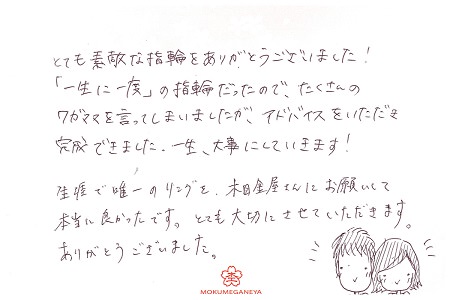 とても素敵な指輪をありがとうございました！
「一生に一度」の指輪だったので、たくさんの
ワガママを言ってしまいましたが、アドバイスをいただき
完成できました。一生、大事にしていきます！
生涯で唯一のリングを、木目金屋さんにお願いして
本当に良かったです。とても大切にさせていただきます。
ありがとうございました。
MOKUMEGANEYA